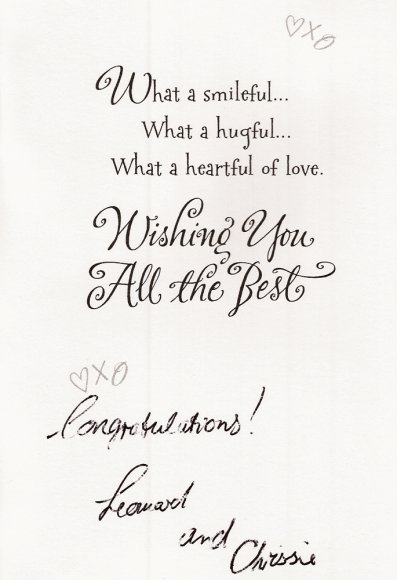 ♡XO
What a smileful...
What a hugful...
What a heartful of love.
Wishing You
All the Best
♡XO
Congratulations!
Leonard
and
Chrissie